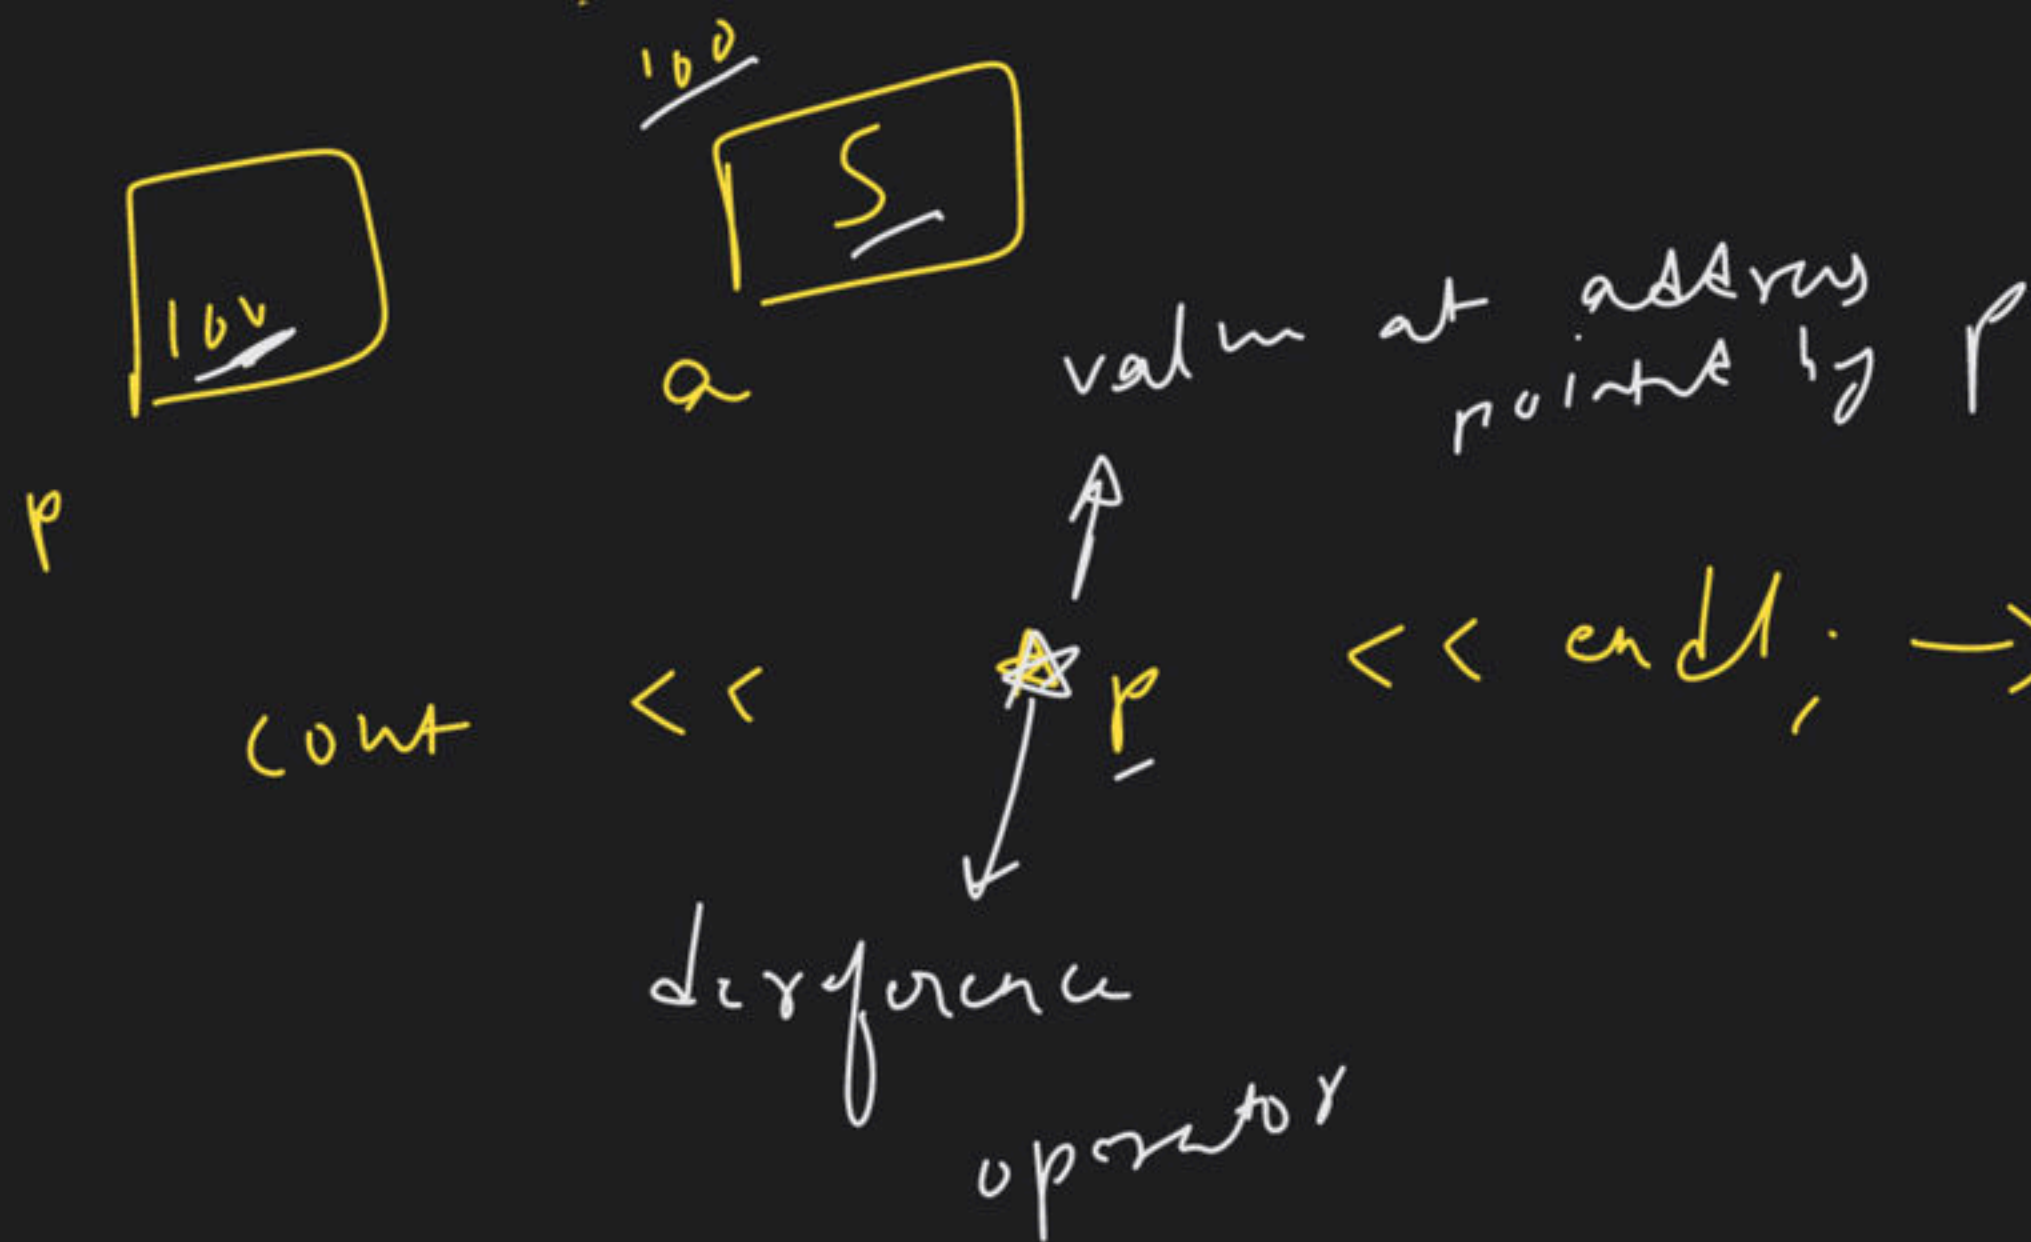 100
5
100
a
p
value at address
pointed by p
cout << *p << endl; →
dereference
operator